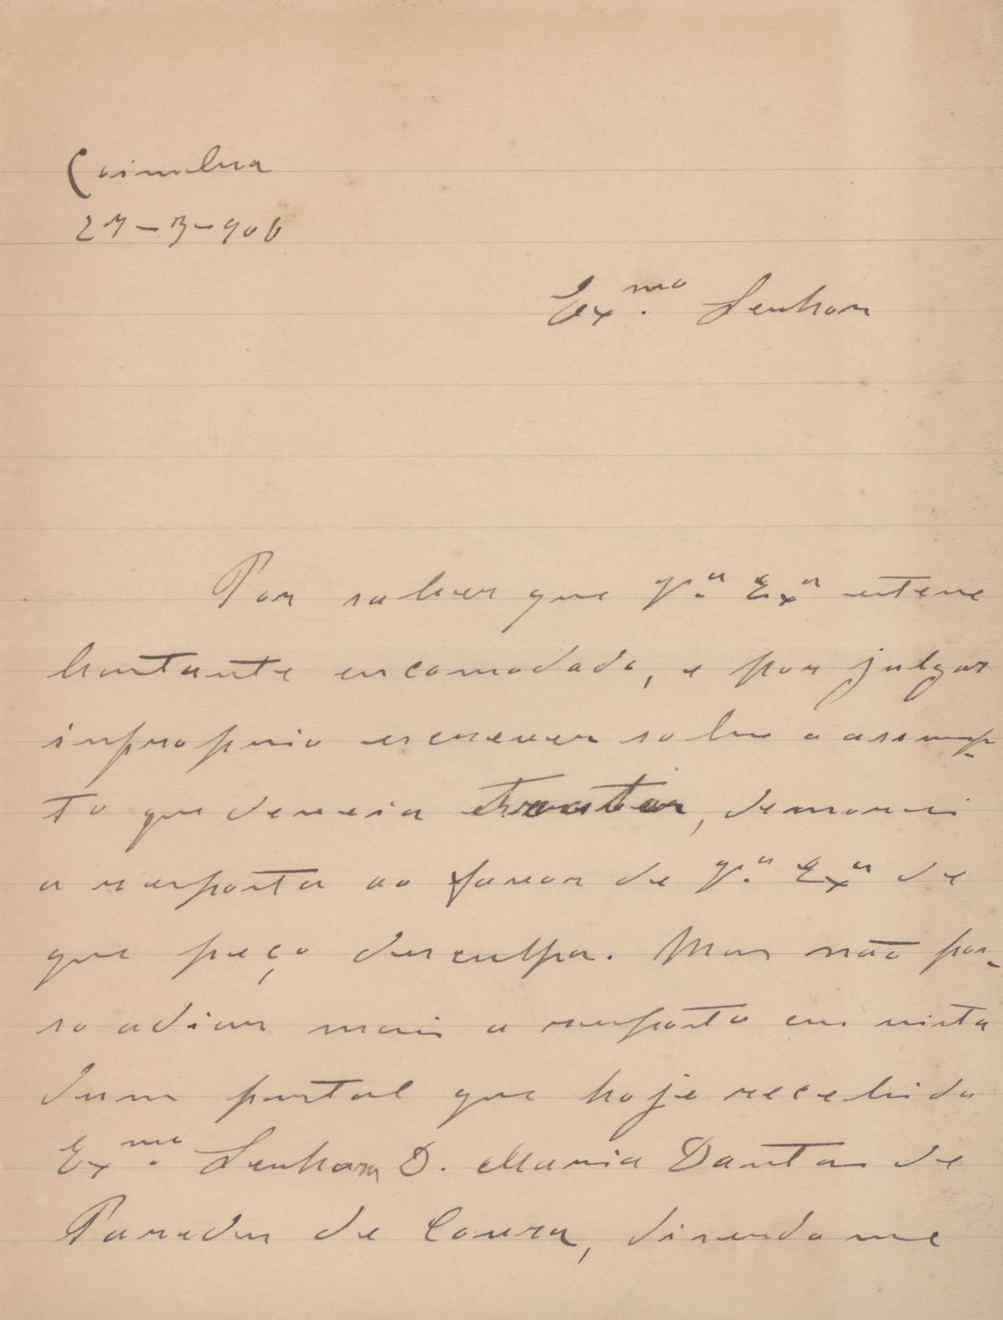 Coimbra
27-3-906
Exmo. Senhor
Por saber que V.a Exa esteve
bastante encomodado, e por julgar
improprio escrever sobre o assump-
to que deveria tratar, demorei
a resposta ao favor de V.a Exa de
que peço desculpa. Mas não pos-
so adiar mais a resposta em vista
dum postal que hoje recebi da
Exma. Senhora D. Maria Dantas de
Paredes de Coura, disendo me